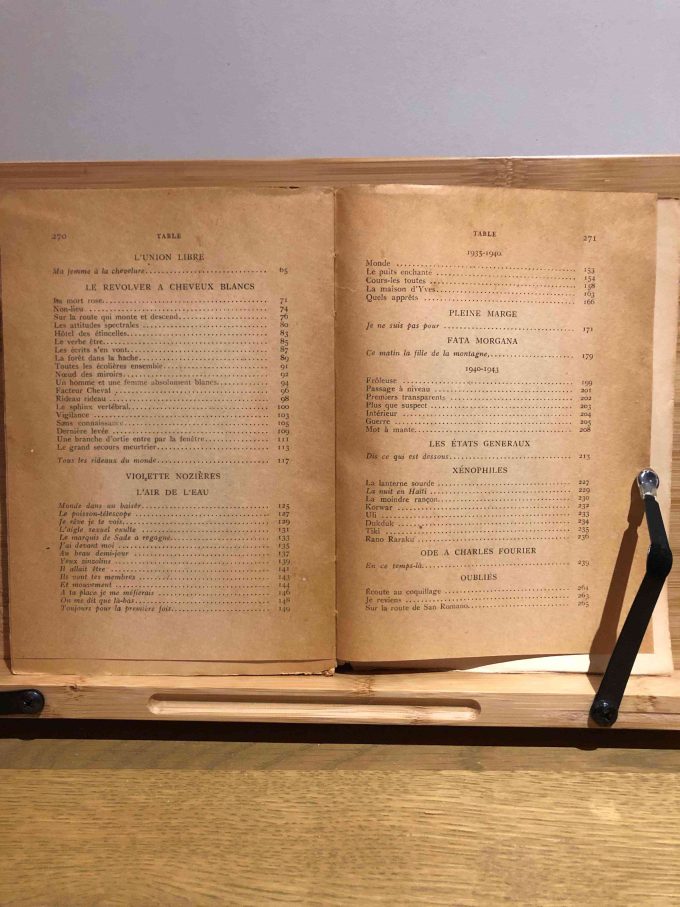 270 TABLE
L'UNION LIBRE
Ma femme à la chevelure 65
LE REVOLVER A CHEVEUX BLANCS
La mort rose 71
Non-lieu 74
Sur la route qui monte et descend 76
Les attitudes spectrales 80
Hôtel des étincelles 83
Le verbe être 85
Les écrits s'en vont 87
La forêt dans la hache 89
Toutes les écolières ensemble 91
Nœud des miroirs 92
Un homme et une femme absolument blancs 94
Facteur Cheval 96
Rideau rideau 98
Le sphinx vertébral 100
Vigilance 103
Sans connaissance 105
Dernière levée 109
Une branche d'ortie entre par la fenêtre 111
Le grand secours meurtrier 113
Tous les rideaux du monde 117
VIOLETTE NOZIÈRES
L'AIR DE L'EAU
Monde dans un baiser 125
Le poisson-télescope 127
Je rêve je te vois 129
L'aigle sexuel exulte 131
Le marquis de Sade a regagné 133
J'ai devant moi 135
Au beau demi-jour 137
Yeux zinzolins 139
Il allait être 141
Ils vont tes membres 143
Et mouvement 144
A ta place je me méfierais 146
On me dit que là-bas 148
Toujours pour la première fois 149
TABLE 271
1935-1940
Monde
Le puits enchanté 153
Cours-les toutes 154
La maison d'Yves 158
Quels apprêts 163
166
PLEINE MARGE
Je ne suis pas pour 171
FATA MORGANA
Ce matin la fille de la montagne 179
1940-1943
Frôleuse 199
Passage à niveau 201
Premiers transparents 202
Plus que suspect 203
Intérieur 204
Guerre 205
Mot à mante 208
LES ÉTATS GENERAUX
Dis ce qui est dessous 213
XÉNOPHILES
La lanterne sourde 227
La nuit en Haïti 229
La moindre rançon 230
Korwar 232
Uli 233
Dukduk 234
Tiki 235
Rano Raraku 236
ODE A CHARLES FOURIER
En ce temps-là 239
OUBLIÉS
Écoute au coquillage 261
Je reviens 263
Sur la route de San Romano 265